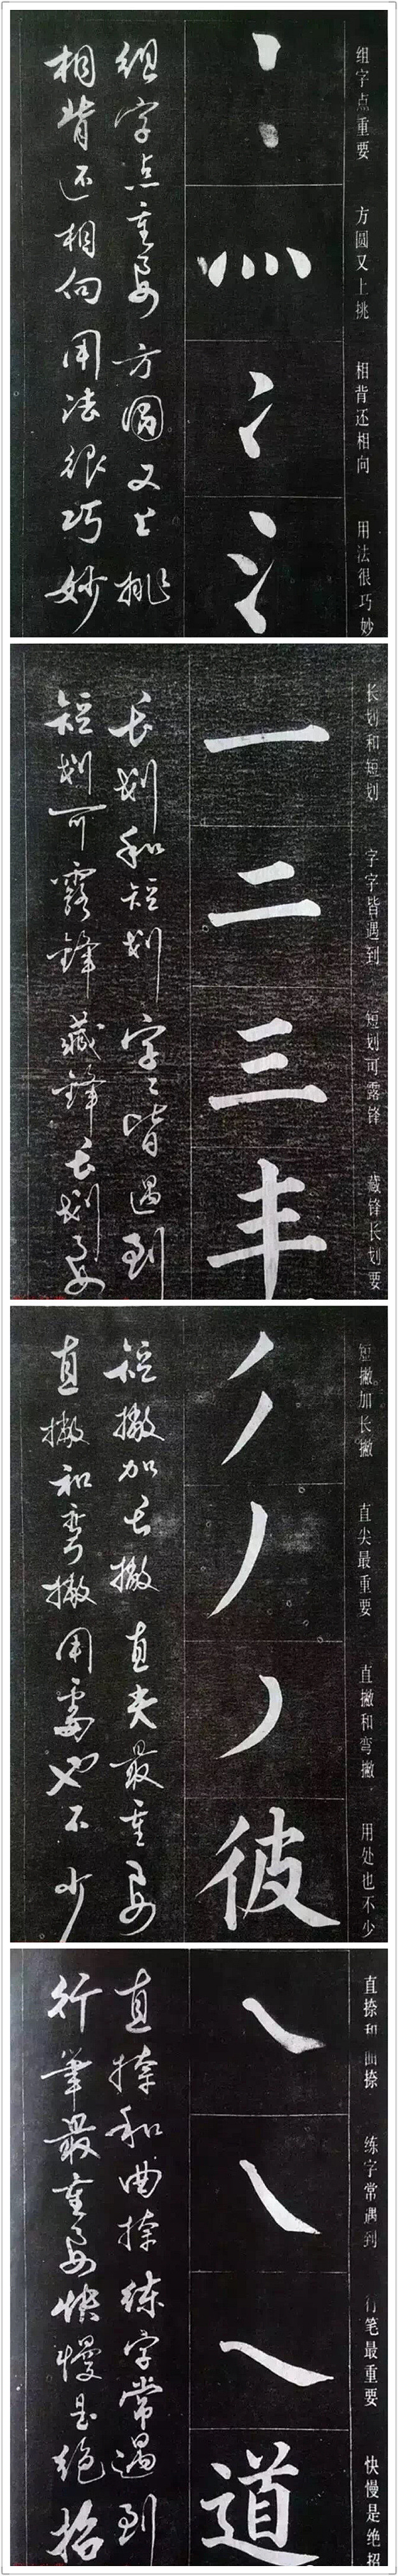 组字点重要 方圆又上挑 相背还相向 用法很巧妙
组字点重要 方圆又上挑
相背还相向 用法很巧妙
长划和短划 字字皆遇到 短划可露锋 藏锋长划要
一
二
三
丰
长划和短划 字〻皆遇到
短划可露锋 藏锋长划要
短撇加长撇 直尖最重要 直撇和弯撇 用处也不少
彼
短撇加长撇 直尖最重要
直撇和弯撇 用处也不少
直捺和曲捺 练字常遇到 行笔最重要 快慢是绝招
道
直捺和曲捺 练字常遇到
行笔最重要 快慢是绝招